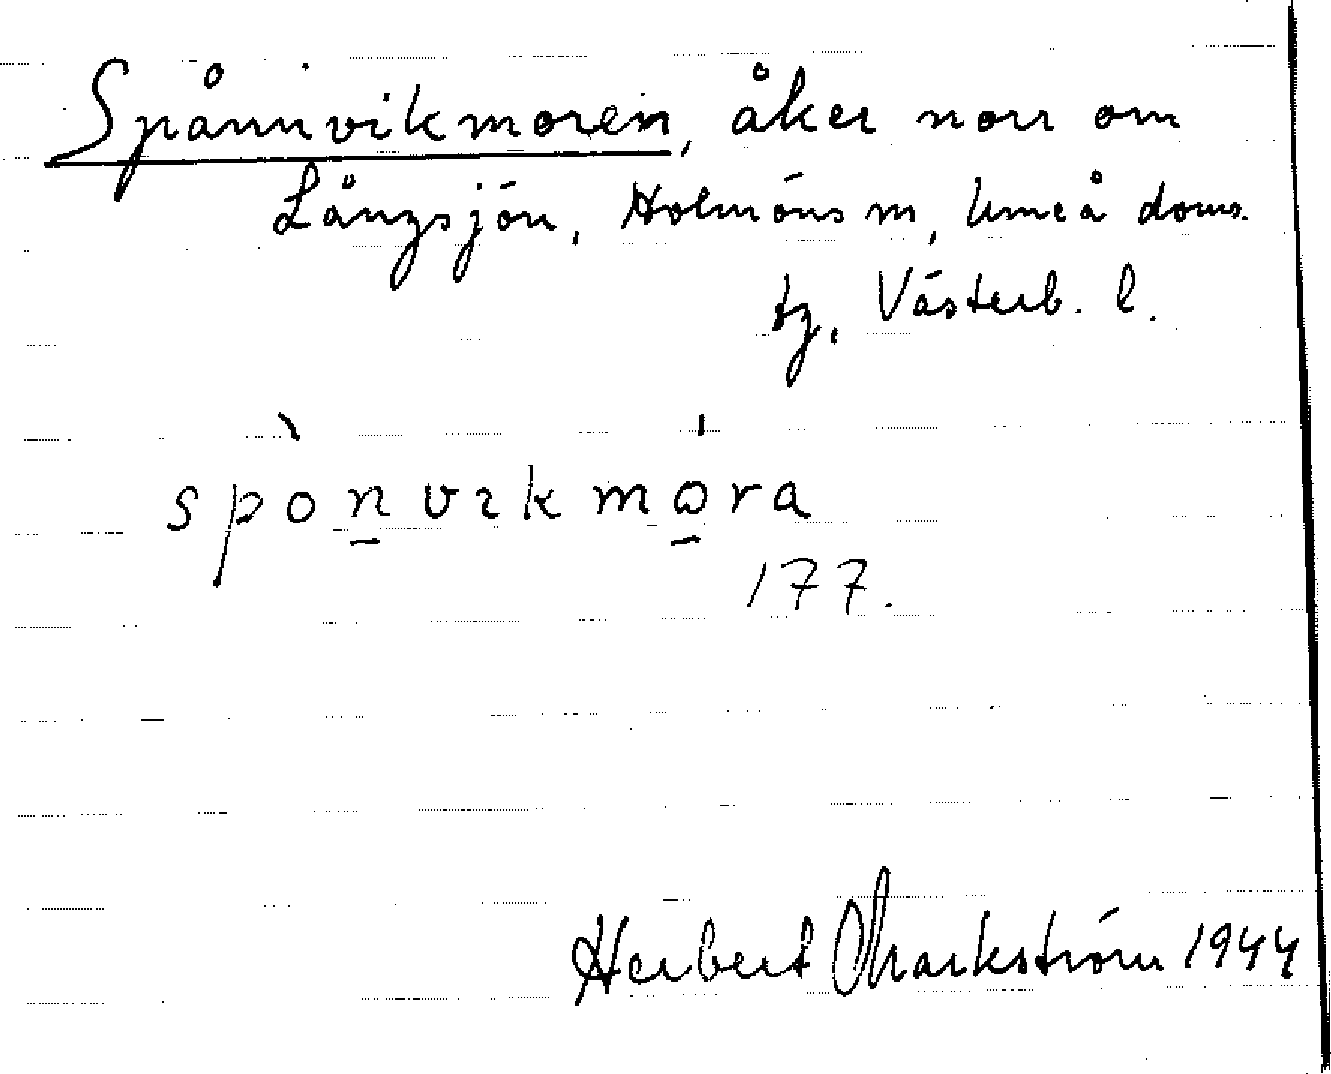 Spånnvikmoren, åker norr om
Långsjön, Holmöns sn, Umeå doms.
tg, Västerb. l.
spònvıkmóra
177.
Herbert Markström 1944